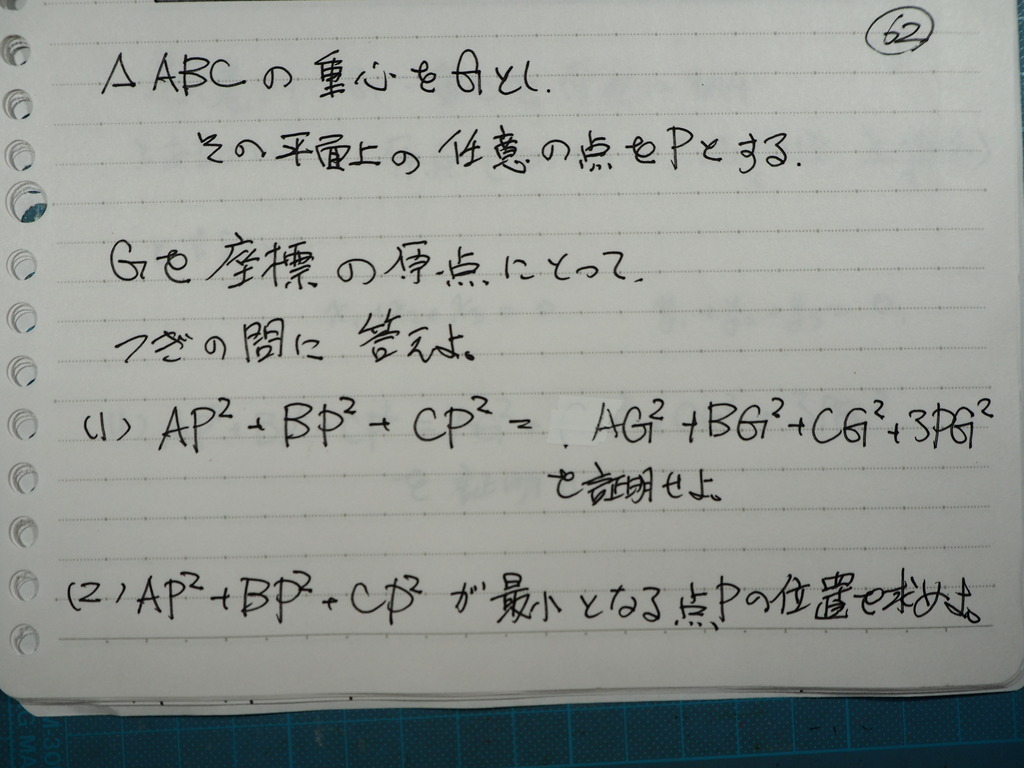 62
△ABCの重心をGとし.
その平面上の任意の点をPとする.
Gを座標の原点にとって.
つぎの問に答えよ。
(1) AP²+BP²+CP² = AG²+BG²+CG²+3PG²
を証明せよ。
(2) AP²+BP²+CP² が最小となる点Pの位置を求めよ。